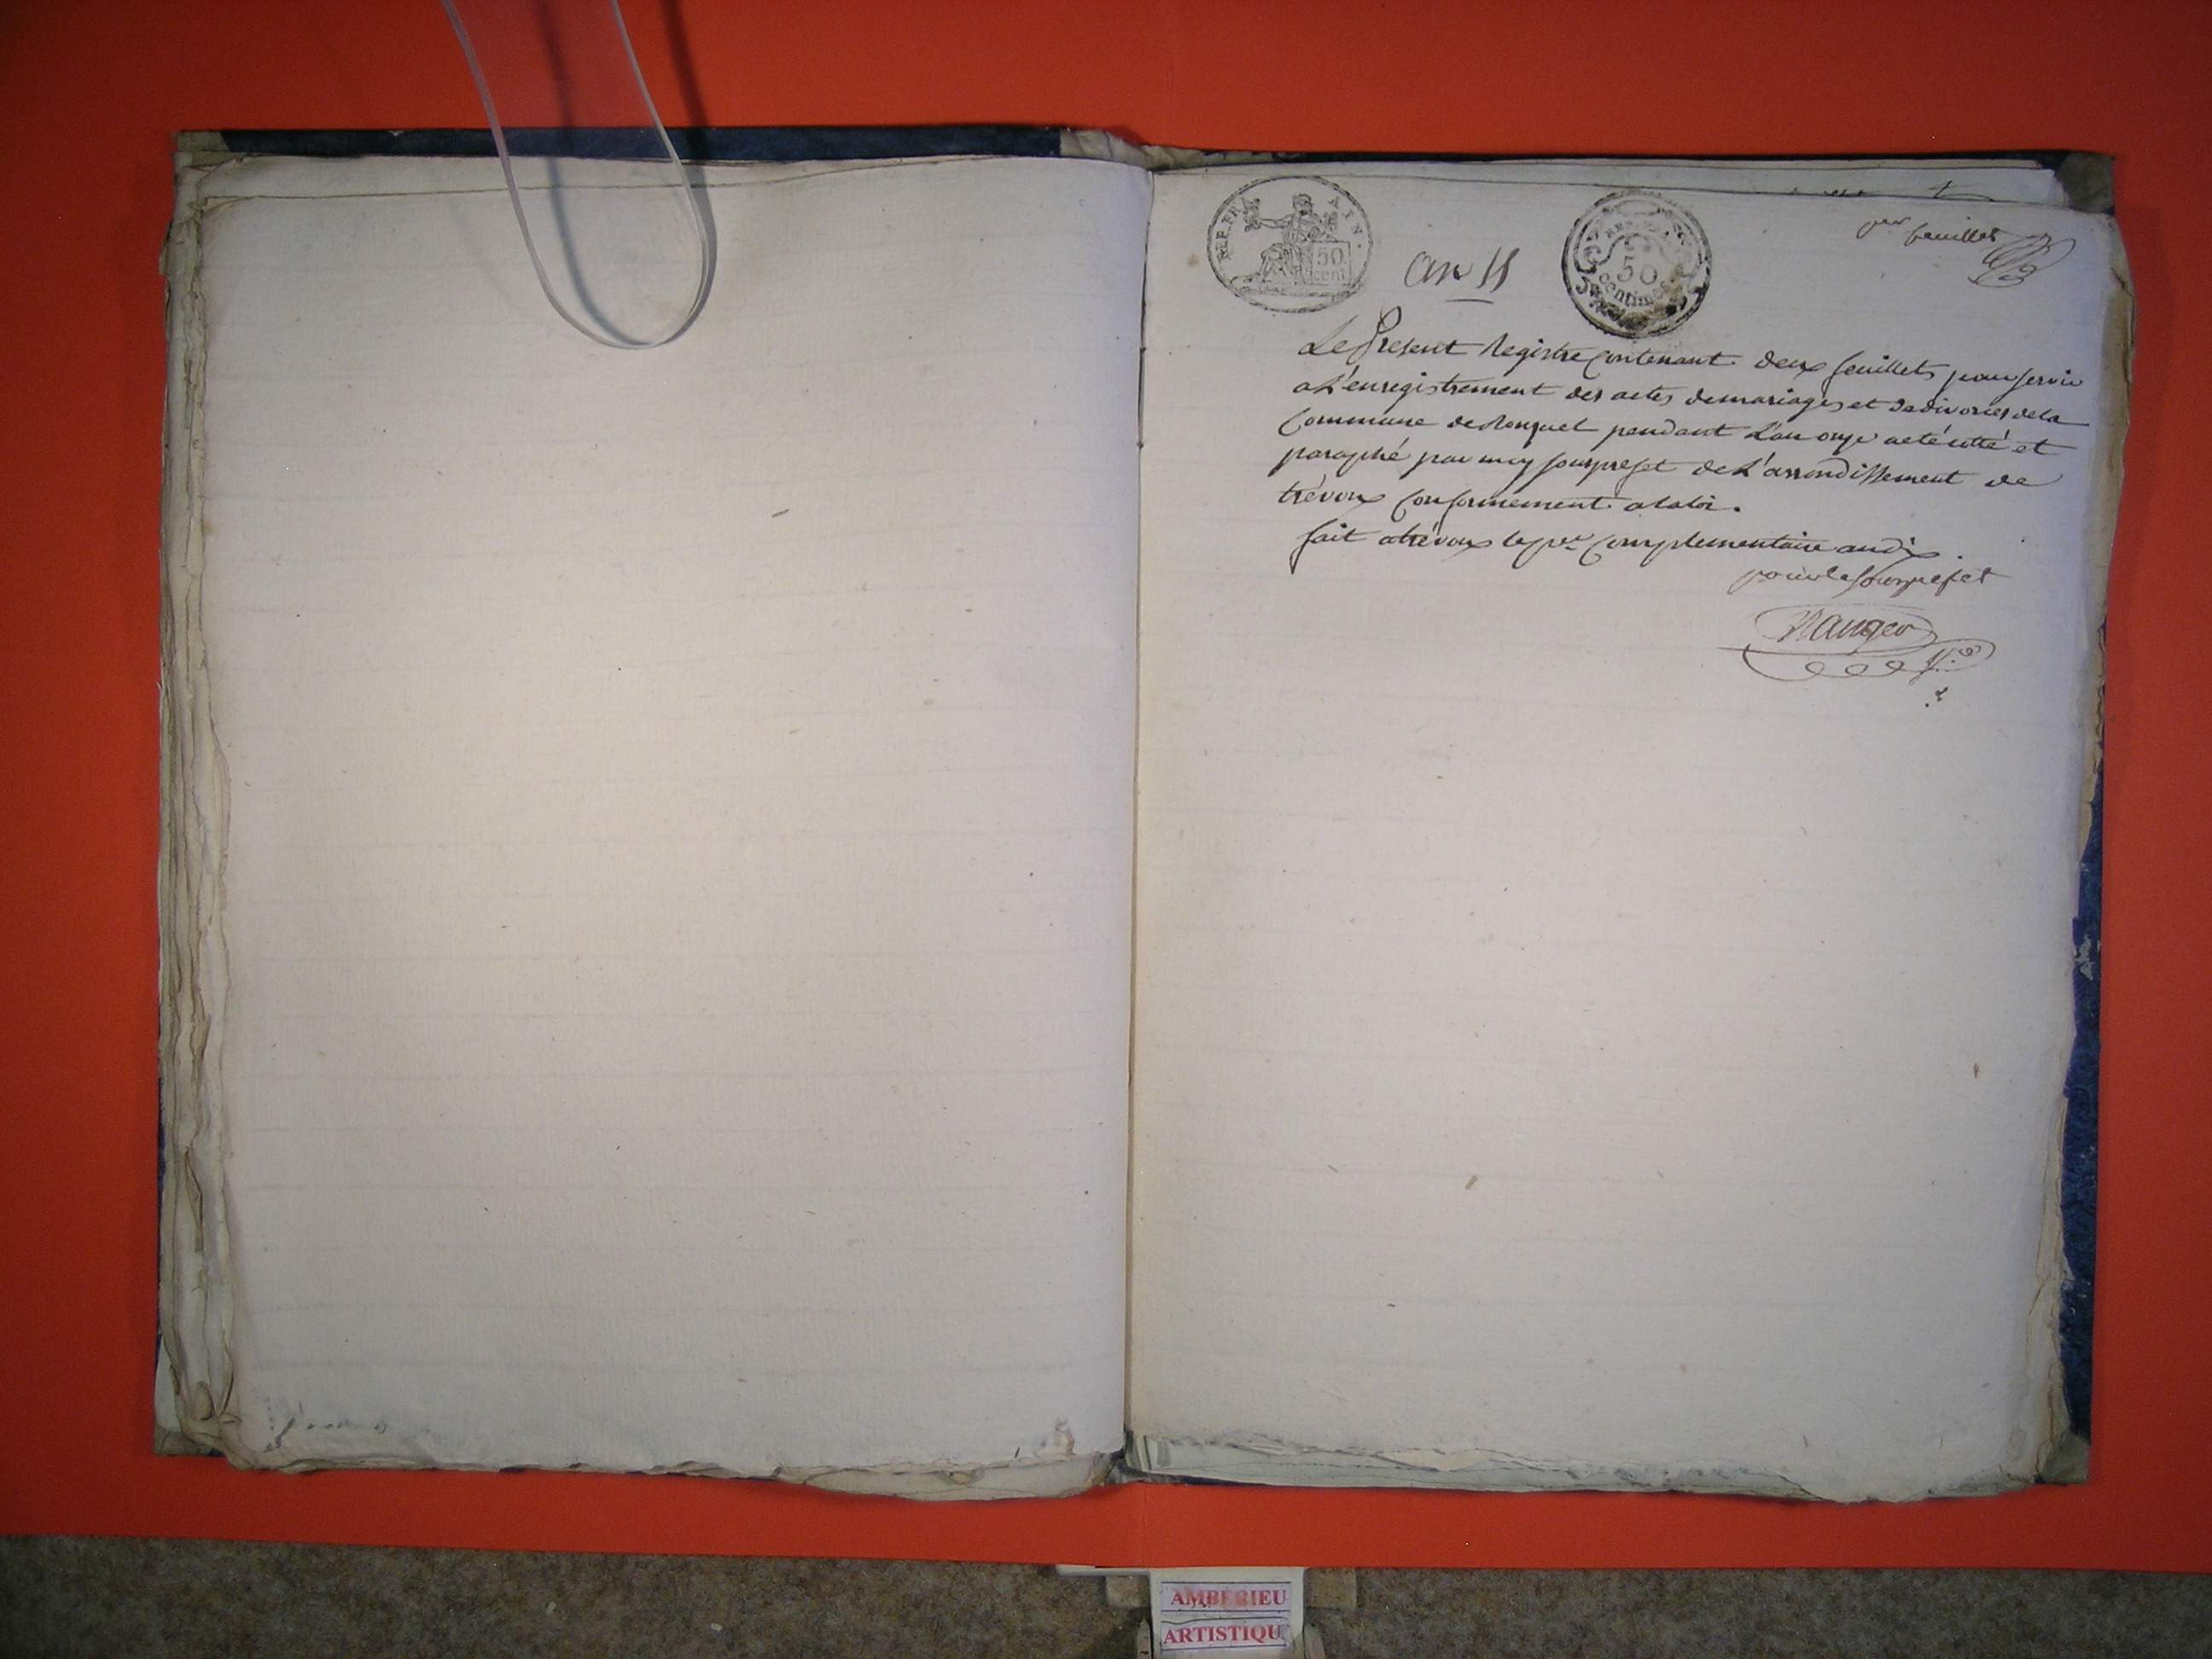 REP. FRA
AIN.
50
cent.
an 11
50
centimes
per feuillet
Le Present Registre contenant deux feuillets pour servir
a L'enregistrement des actes de mariages et de divorces de la
Commune de ronquel pendant L'an onze a eté cotté et
paraphé par moy souprefet de L'arrondissement de
trévoux conformement a la loi.
fait a trévoux le per complementaire an dix.
pour le souprefet
AMBERIEU
ARTISTIQU